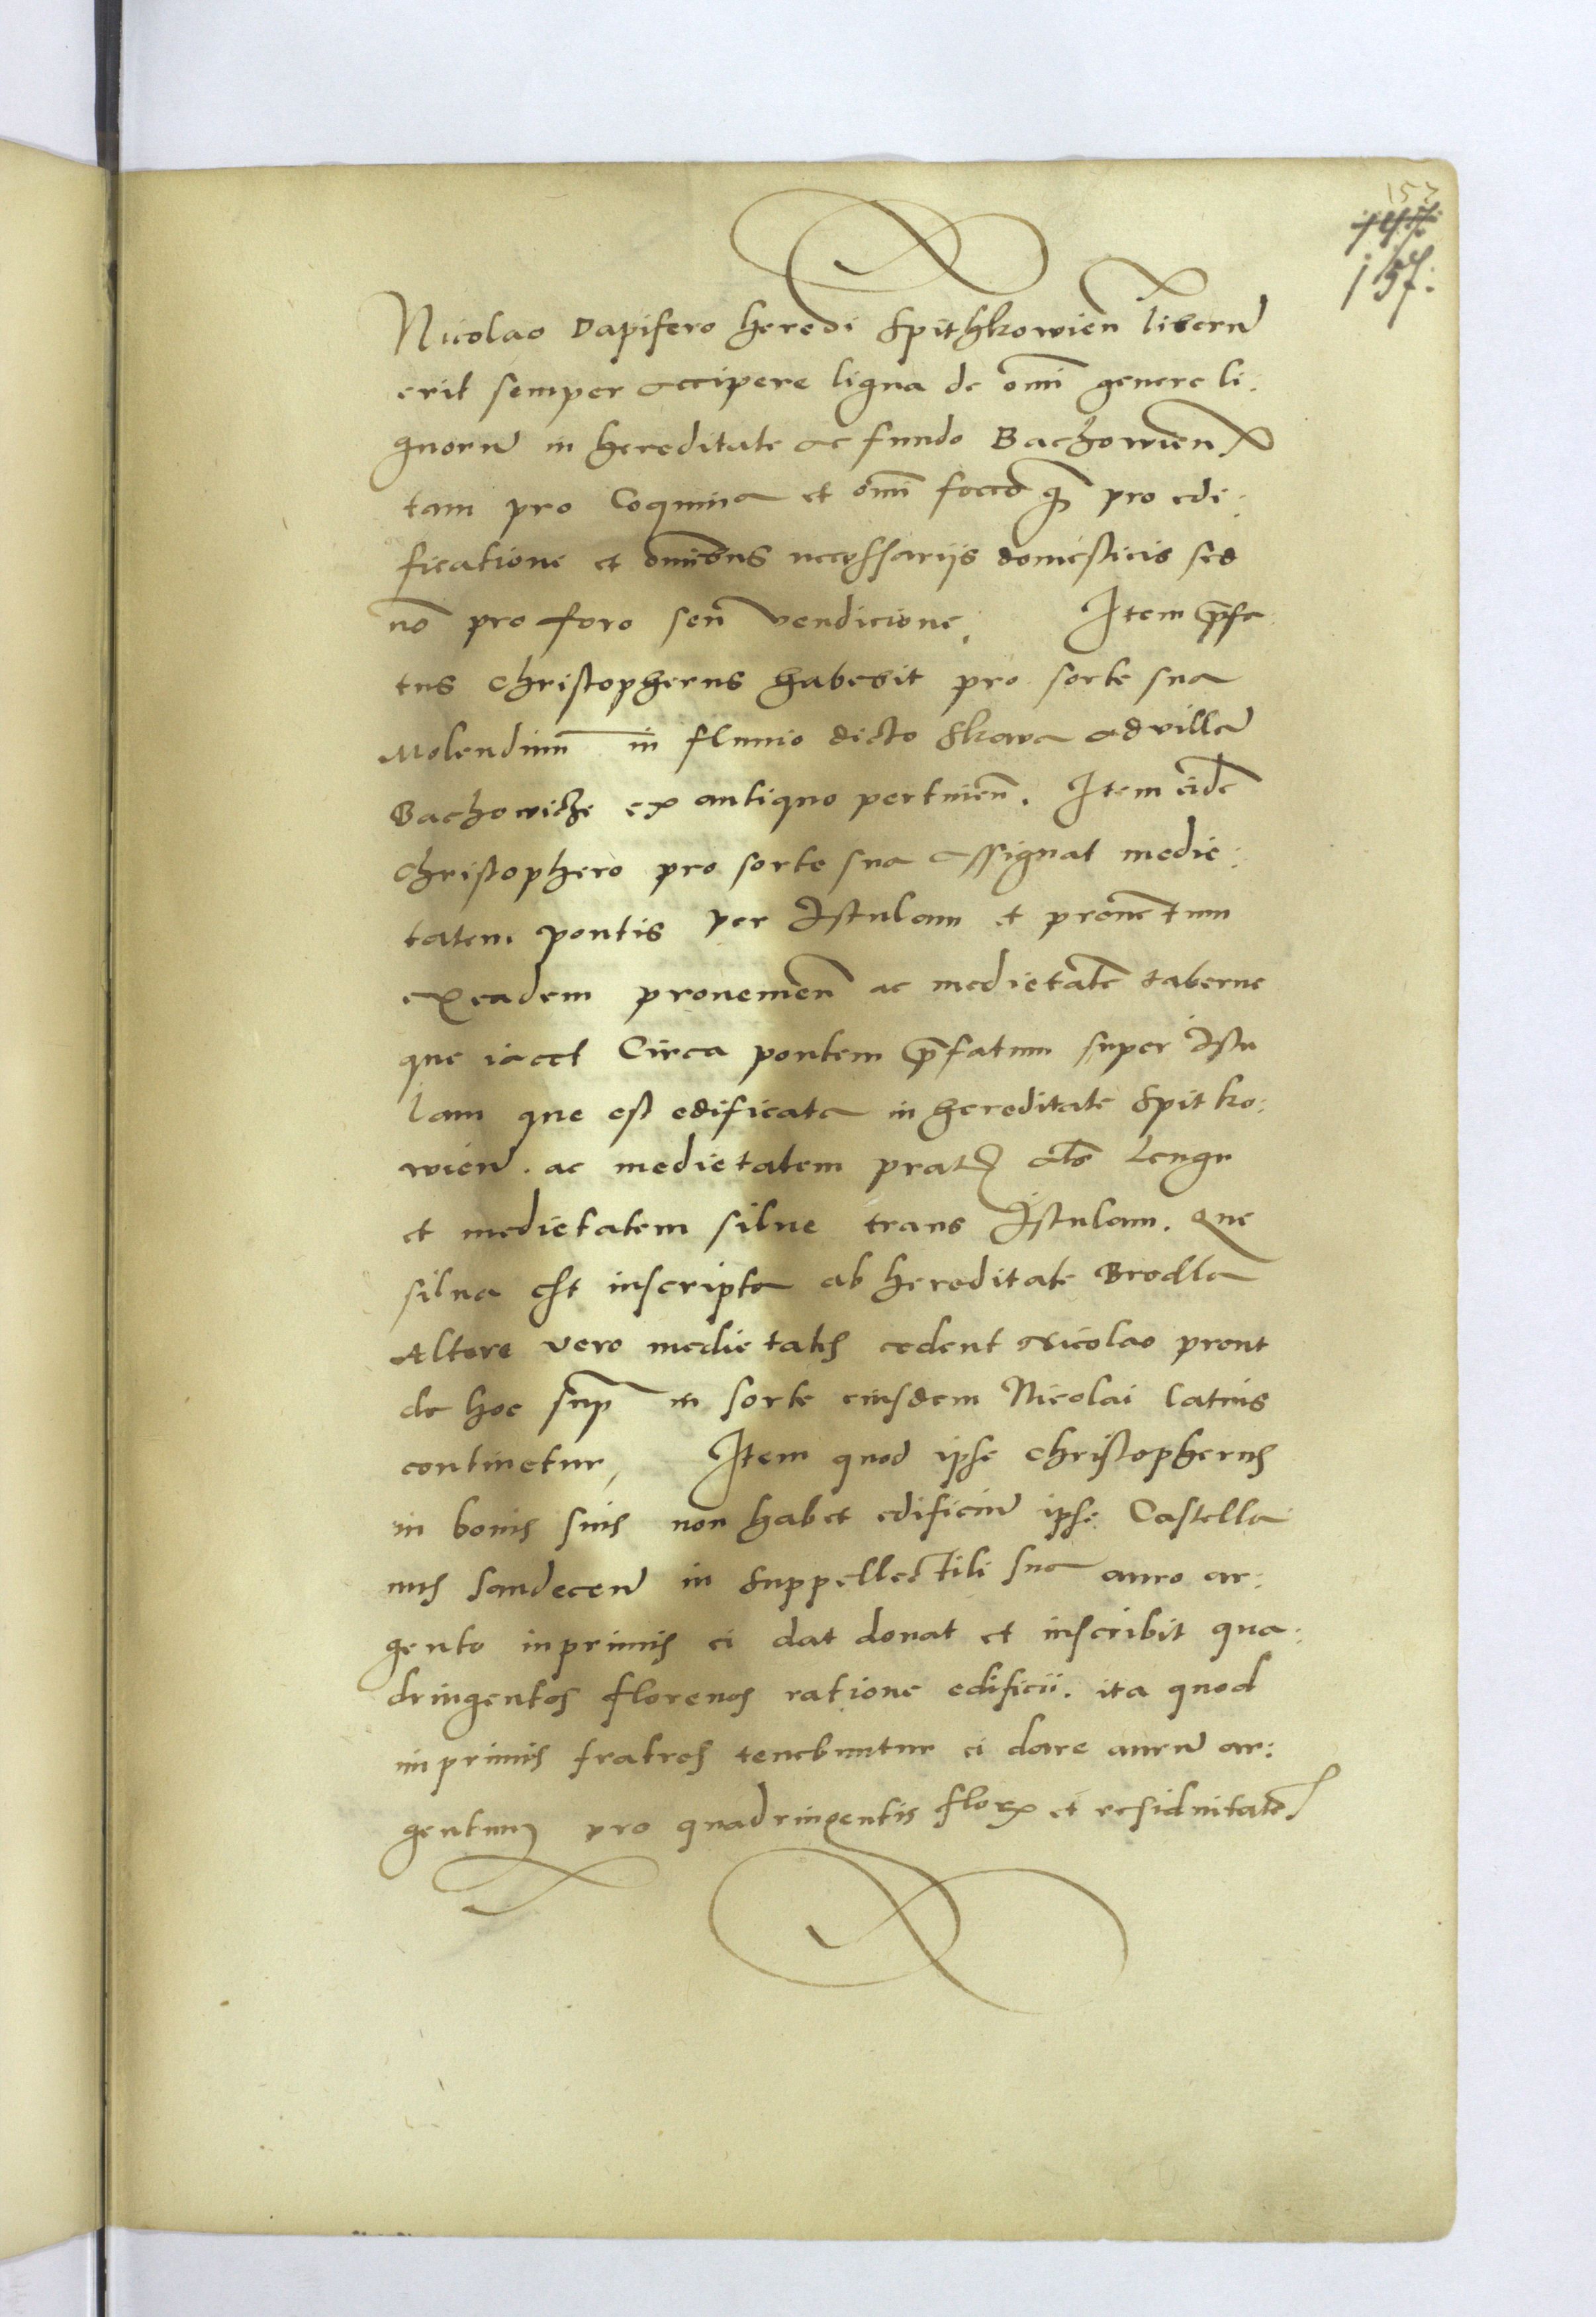 153
157.
Nicolao Dapifero heredi Spithkowien̄ liberū
erit semper accipere ligna de om̄i genere li:
gnorū in hereditate ac fundo Bachowien
tam pro Coquina et om̄i foco q̄ pro edi:
ficatione et om̄ibus necessariis domesticis sed
nō pro foro seu vendicione. Item p̄fa
tus Christopherus habebit pro sorte sua
Molendinū in fluuio dicto Skawa ad villā
Bachowicze ex antiquo pertinen̄. Item eidē
Christophero pro sorte sua assignat medie:
tatem pontis per Istulam et prouentum
ex eadem prouenien̄ ac medietatē taberne
que iacet Circa pontem p̄fatum super Istu
lam que est edificata in hereditate Spitko:
wien̄. ac medietatem prat als Lengu
et medietatem silue trans Istulam. Que
silua est inscripta ab hereditate Brodla
Altere vero medietates cedent Nicolao prout
de hoc sup̄ in sorte eiusdem Nicolai latius
continetur, Item quod ipse Christopherus
in bonis suis non habet edificiū ipse Castella
nus Sandecen̄ in Suppellectili sua auro ar:
gento inprimis ei dat donat et inscribit qua:
dringentos florenos ratione edificii. ita quod
inprimis fratres tenebuntur ei dare aurū ar:
gentum pro quadringentis flor et residuitatē